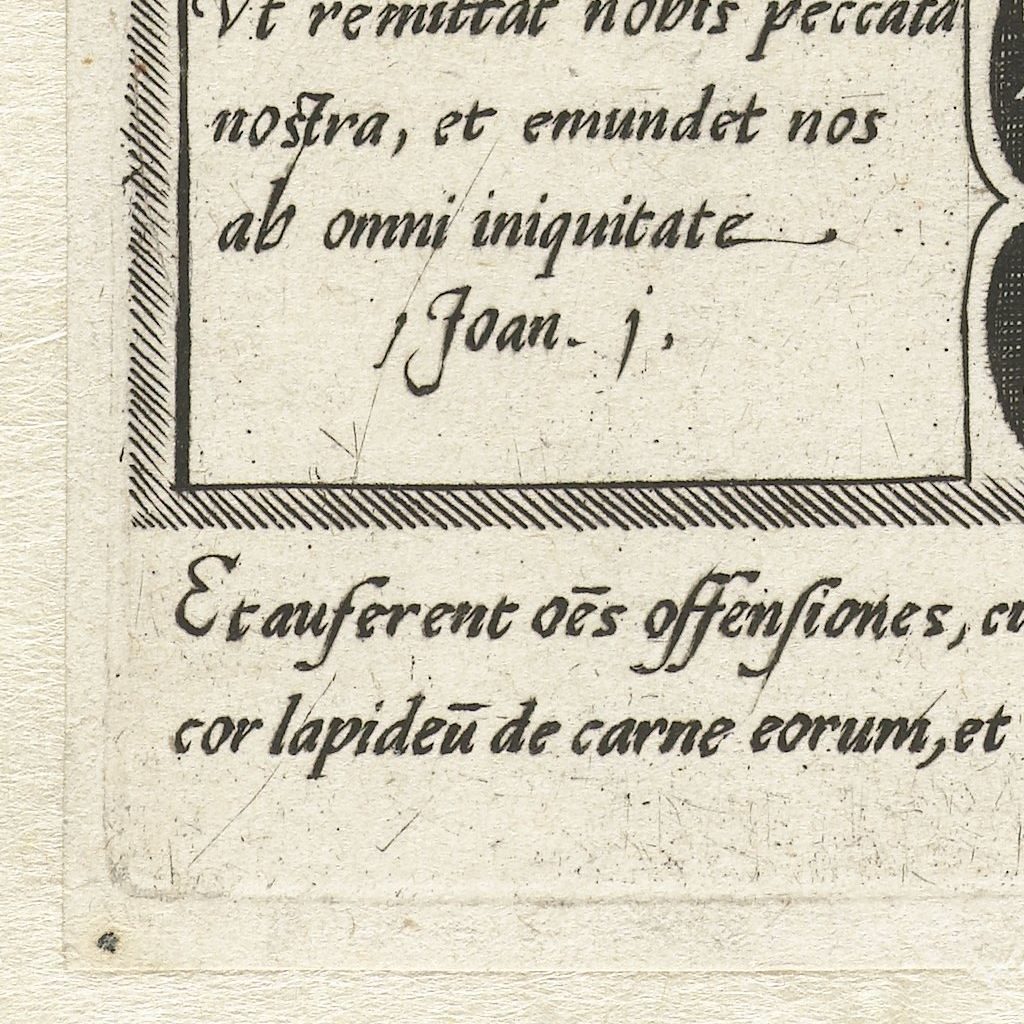 Vt remittat nobis peccata
nostra, et emundet nos
ab omni iniquitate.
1 Joan. j.
Et auferent oēs offensiones,
cor lapideū de carne eorum, et